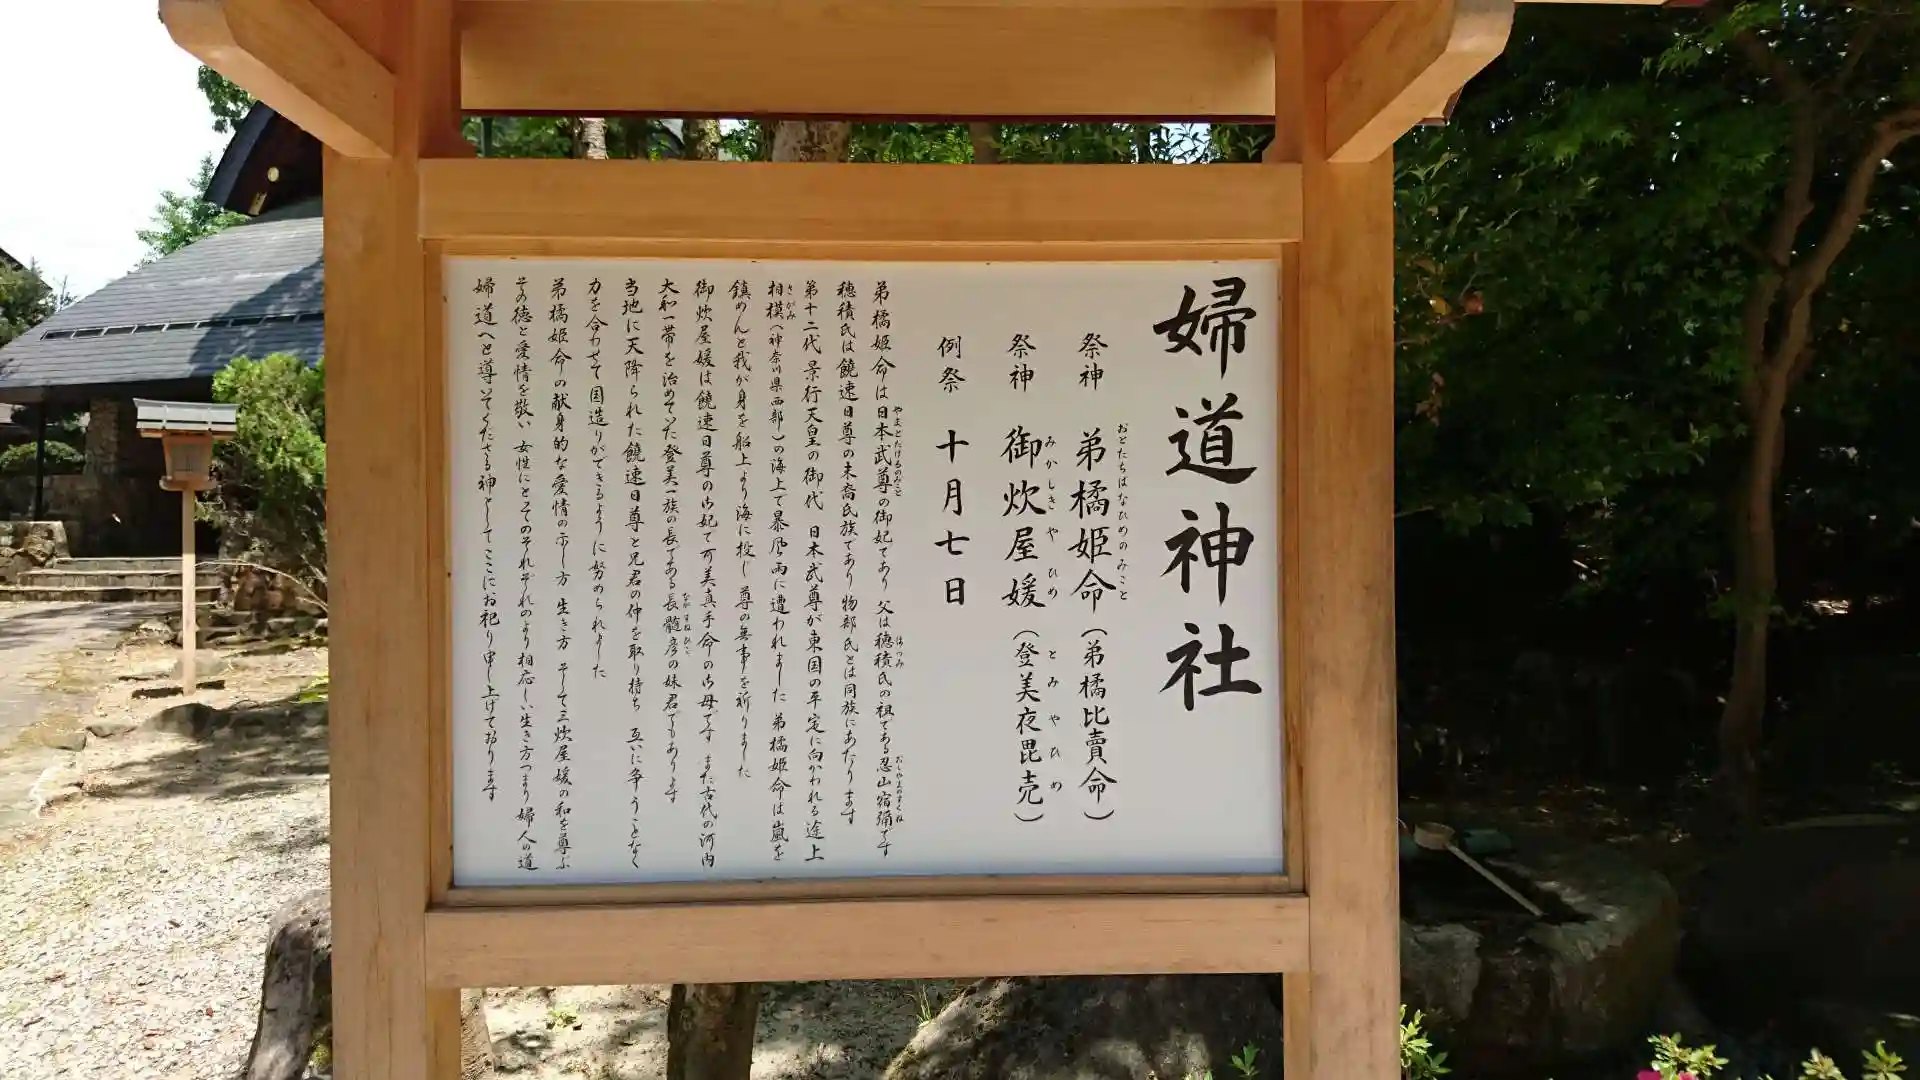 婦道神社
祭神 弟橘姫命(弟橘比賣命)
おとたちばなひめのみこと
祭神 御炊屋媛(登美夜毘売)
みかしきやひめ とみやひめ
例祭 十月七日
弟橘姫命は日本武尊の御妃であり 父は穂積氏の祖である忍山宿禰です
やまとたけるのみこと ほつみ おしやまのすくね
穂積氏は饒速日尊の末裔氏族であり物部氏とは同族にあたります
第十二代 景行天皇の御代 日本武尊が東国の平定に向かわれる途上
相模(神奈川県西部)の海上で暴風雨に遭われました 弟橘姫命は嵐を
さがみ
鎮めんと我が身を船上より海に投じ 尊の無事を祈りました
御炊屋媛は饒速日尊のお妃で可美真手命のお母です また古代の河内
大和一帯を治めていた登美一族の長である長髄彦の妹君でもあります
ながすねひこ
当地に天降られた饒速日尊と兄君の仲を取り持ち 互いに争うことなく
力を合わせて国造りができるように努められました
弟橘姫命の献身的な愛情の示し方 生き方 そして三炊屋媛の和を尊ぶ
その徳と愛情を敬い 女性にとってのそれぞれのより相応しい生き方つまり婦人の道
婦道へと導いてくださる神としてここにお祀り申し上げております